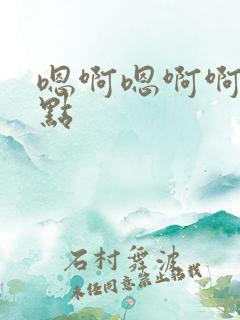 嗯啊嗯啊啊
點
石村舞波
未经同意禁止转载